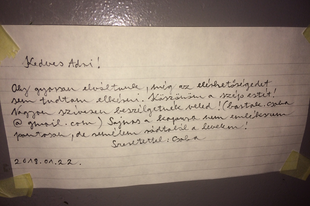 Kedves Adri!
Oly gyorsan elváltunk, még az elérhetőségedet
sem tudtam elkérni. Köszönöm a szép estét!
Nagyon szívesen beszélgetnék veled! (bartak.csaba
@gmail.com) Sajnos a kapura nem emlékszem
pontosan, de remélem rádtalál a levelem!
Szeretettel, Csaba
2018.01.22.